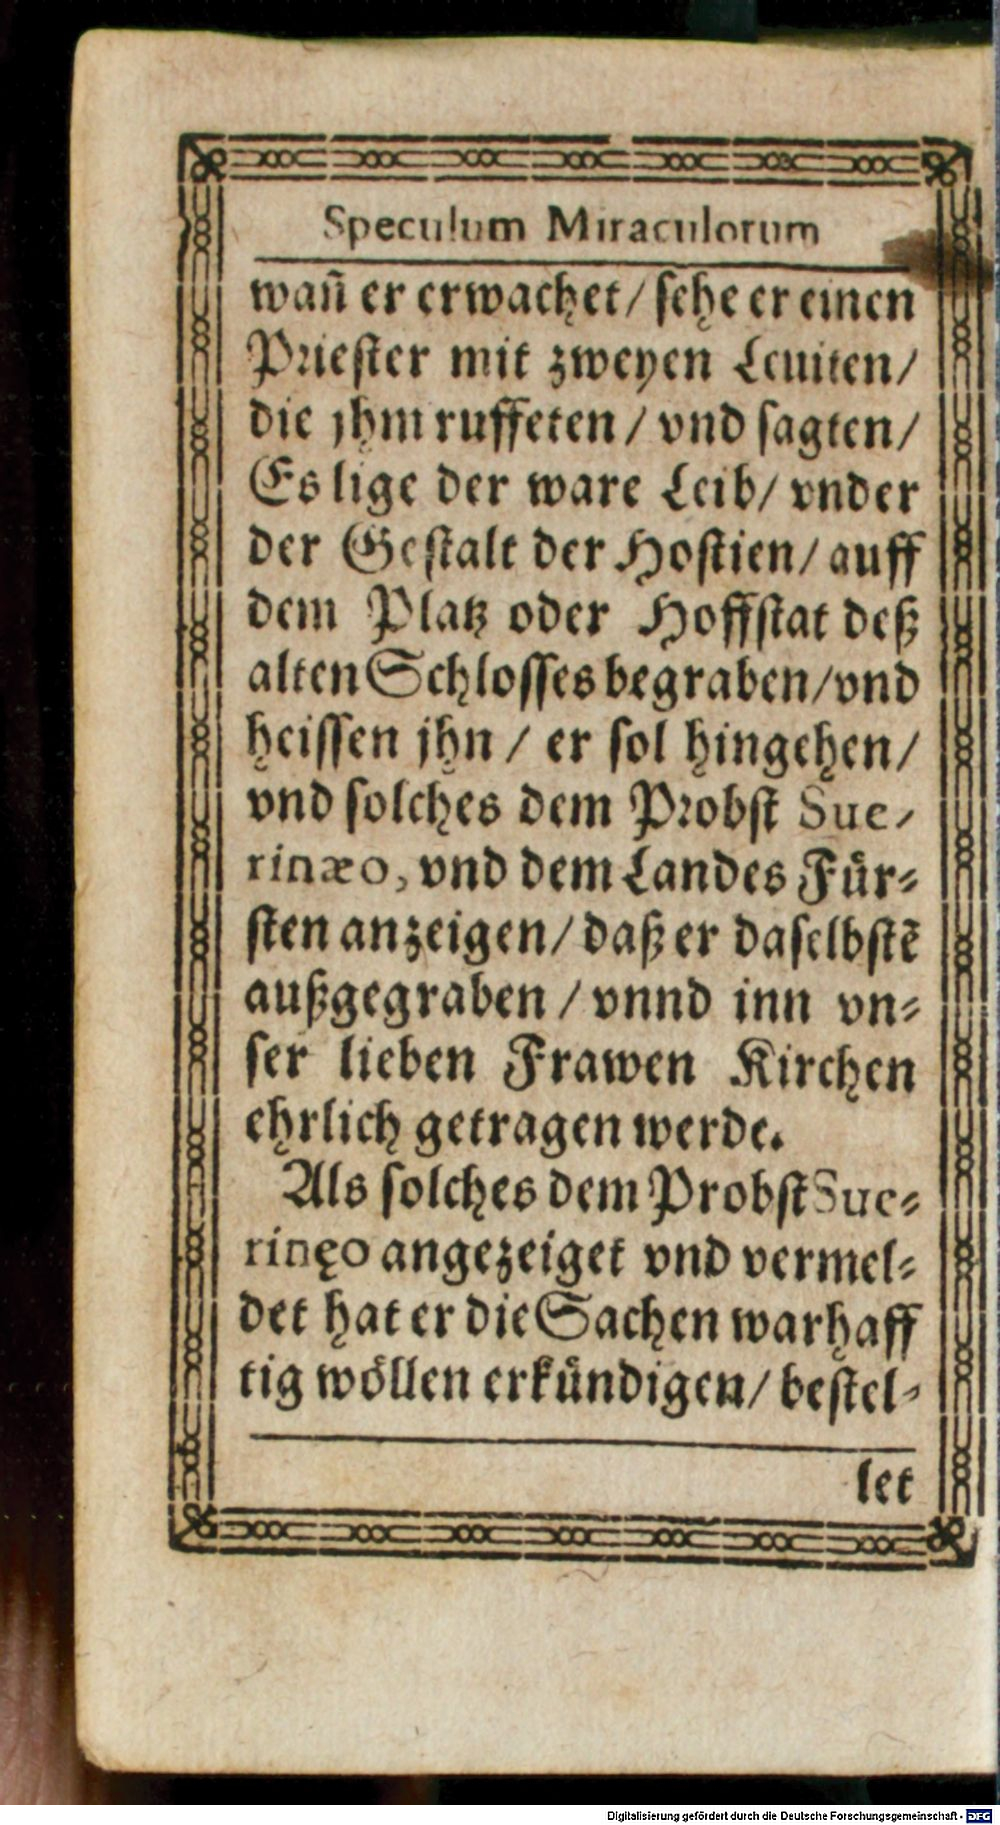 Speculum Miraculorum
wañ er erwachet / sehe er einen
Priester mit zweyen Leuiten /
die jhm ruffeten / vnd sagten /
Es lige der ware Leib / vnder
der Gestalt der Hostien / auff
dem Platz oder Hoffstat deß
alten Schlosses begraben / vnd
heissen jhn / er sol hingehen /
vnd solches dem Probst Sue-
rinæo, vnd dem Landes Für-
sten anzeigen / daß er daselbstẽ
außgegraben / vnnd inn vn-
ser lieben Frawen Kirchen
ehrlich getragen werde.
Als solches dem Probst Sue-
rinęo angezeiget vnd vermel-
det hat er die Sachen warhaff
tig wöllen erkündigen / bestel-
let
Digitalisierung gefördert durch die Deutsche Forschungsgemeinschaft - DFG